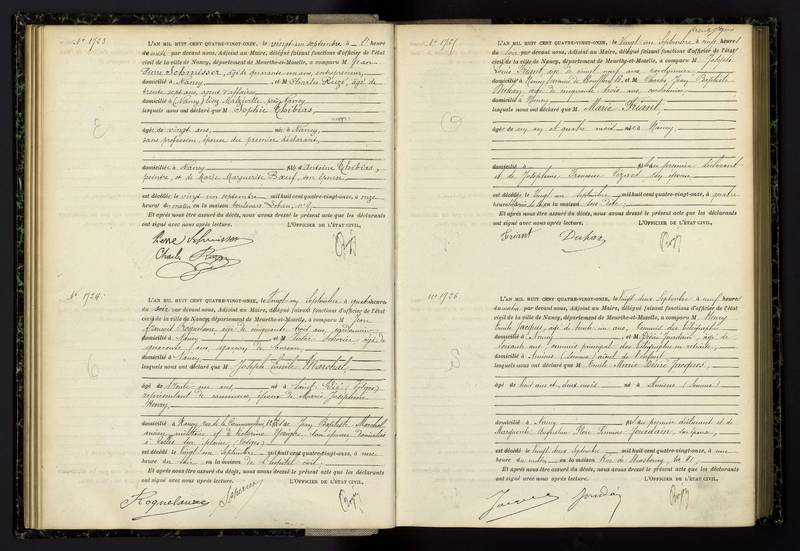 N° 1723
L'AN MIL HUIT CENT QUATRE-VINGT-ONZE, le vingt un septembre à une heure
du soir par devant nous, Adjoint au Maire, délégué faisant fonctions d'officier de l'état
civil de la ville de Nancy, département de Meurthe-et-Moselle, a comparu M Jean
Pierre Schmisser, âgé de quarante un ans, entrepreneur,
domicilié à Nancy, et M Charles âgé de
trente sept ans, agent d'affaires,
domicilié à (Nancy) Malzéville près Nancy
lesquels nous ont déclaré que M Sophie Thibias,
âgée de vingt ans, née à Nancy,
sans profession, épouse du premier déclarant,
domiciliée à Nancy fille d'Antoine Thibias,
peintre, et de Marie Marguerite Bœuf, son épouse,
est décédée le vingt un septembre mil huit cent quatre-vingt-onze, à onze
heures du matin en la maison boulevard Lobau, n°
Et après nous être assuré du décès, nous avons dressé le présent acte que les déclarants
ont signé avec nous après lecture. L'OFFICIER DE L'ÉTAT CIVIL,
Pierre Schmisser
Charles
N° 1724
L'AN MIL HUIT CENT QUATRE-VINGT-ONZE, le Vingt un Septembre à quatre heures
du Soir par devant nous, Adjoint au Maire, délégué faisant fonctions d'officier de l'état
civil de la ville de Nancy, département de Meurthe-et-Moselle, a comparu M Jean
Roquelaure, âgé de cinquante ans,
domicilié à Nancy et M Scherier âgé de
quarante ans, garçon de bureau
domicilié à Nancy
lesquels nous ont déclaré que M Joseph Emile Marchal,
âgé de trente un ans né à Saint-Dié (Vosges)
représentant de commerce, époux de Marie Joséphine
Henry,
domicilié à Nancy, rue de la Commanderie fils de Jean Baptiste Marchal
ancien militaire et de son épouse domiciliés
à Celles sur plaine (Vosges)
est décédé le Vingt un Septembre mil huit cent quatre-vingt-onze, à une
heure du soir en la maison de l'hôpital civil,
Et après nous être assuré du décès, nous avons dressé le présent acte que les déclarants
ont signé avec nous après lecture. L'OFFICIER DE L'ÉTAT CIVIL,
Roquelaure Scherier
N° 1725
L'AN MIL HUIT CENT QUATRE-VINGT-ONZE, le Vingt un Septembre à cinq heures
du Soir par devant nous, Adjoint au Maire, délégué faisant fonctions d'officier de l'état
civil de la ville de Nancy, département de Meurthe-et-Moselle, a comparu M Joseph
Louis Friant, âgé de vingt neuf ans, cordonnier
domicilié à Nancy, et M Jean Baptiste
âgé de cinquante trois ans, cordonnier
domicilié à Nancy
lesquels nous ont déclaré que M Marie Friant,
âgée de un an et quatre mois née à Nancy,
domiciliée à fille du premier déclarant
et de Joséphine Françoise son épouse
est décédée le Vingt un Septembre mil huit cent quatre-vingt-onze, à quatre
heures du soir en la maison sus dite,
Et après nous être assuré du décès, nous avons dressé le présent acte que les déclarants
ont signé avec nous après lecture. L'OFFICIER DE L'ÉTAT CIVIL,
Friant
N° 1726
L'AN MIL HUIT CENT QUATRE-VINGT-ONZE, le Vingt deux Septembre à neuf heures
du matin par devant nous, Adjoint au Maire, délégué faisant fonctions d'officier de l'état
civil de la ville de Nancy, département de Meurthe-et-Moselle, a comparu M Henry
Emile Jacques, âgé de trente un ans, Commis des télégraphes
domicilié à Nancy et M Désiré Jourdain, âgé de
soixante ans, Commis principal des télégraphes en retraite,
domicilié à Amiens (Somme) aïeul de l'enfant
lesquels nous ont déclaré que M Emile Marie Désiré Jacques,
âgé de huit ans et deux mois né à Amiens (Somme)
domicilié à Nancy fils du premier déclarant et de
Marguerite Augustine Flore Jourdain, son épouse,
est décédé le Vingt deux Septembre mil huit cent quatre-vingt-onze, à une
heure du matin en la maison Rue de Strasbourg,
Et après nous être assuré du décès, nous avons dressé le présent acte que les déclarants
ont signé avec nous après lecture. L'OFFICIER DE L'ÉTAT CIVIL,
Jacques Jourdain